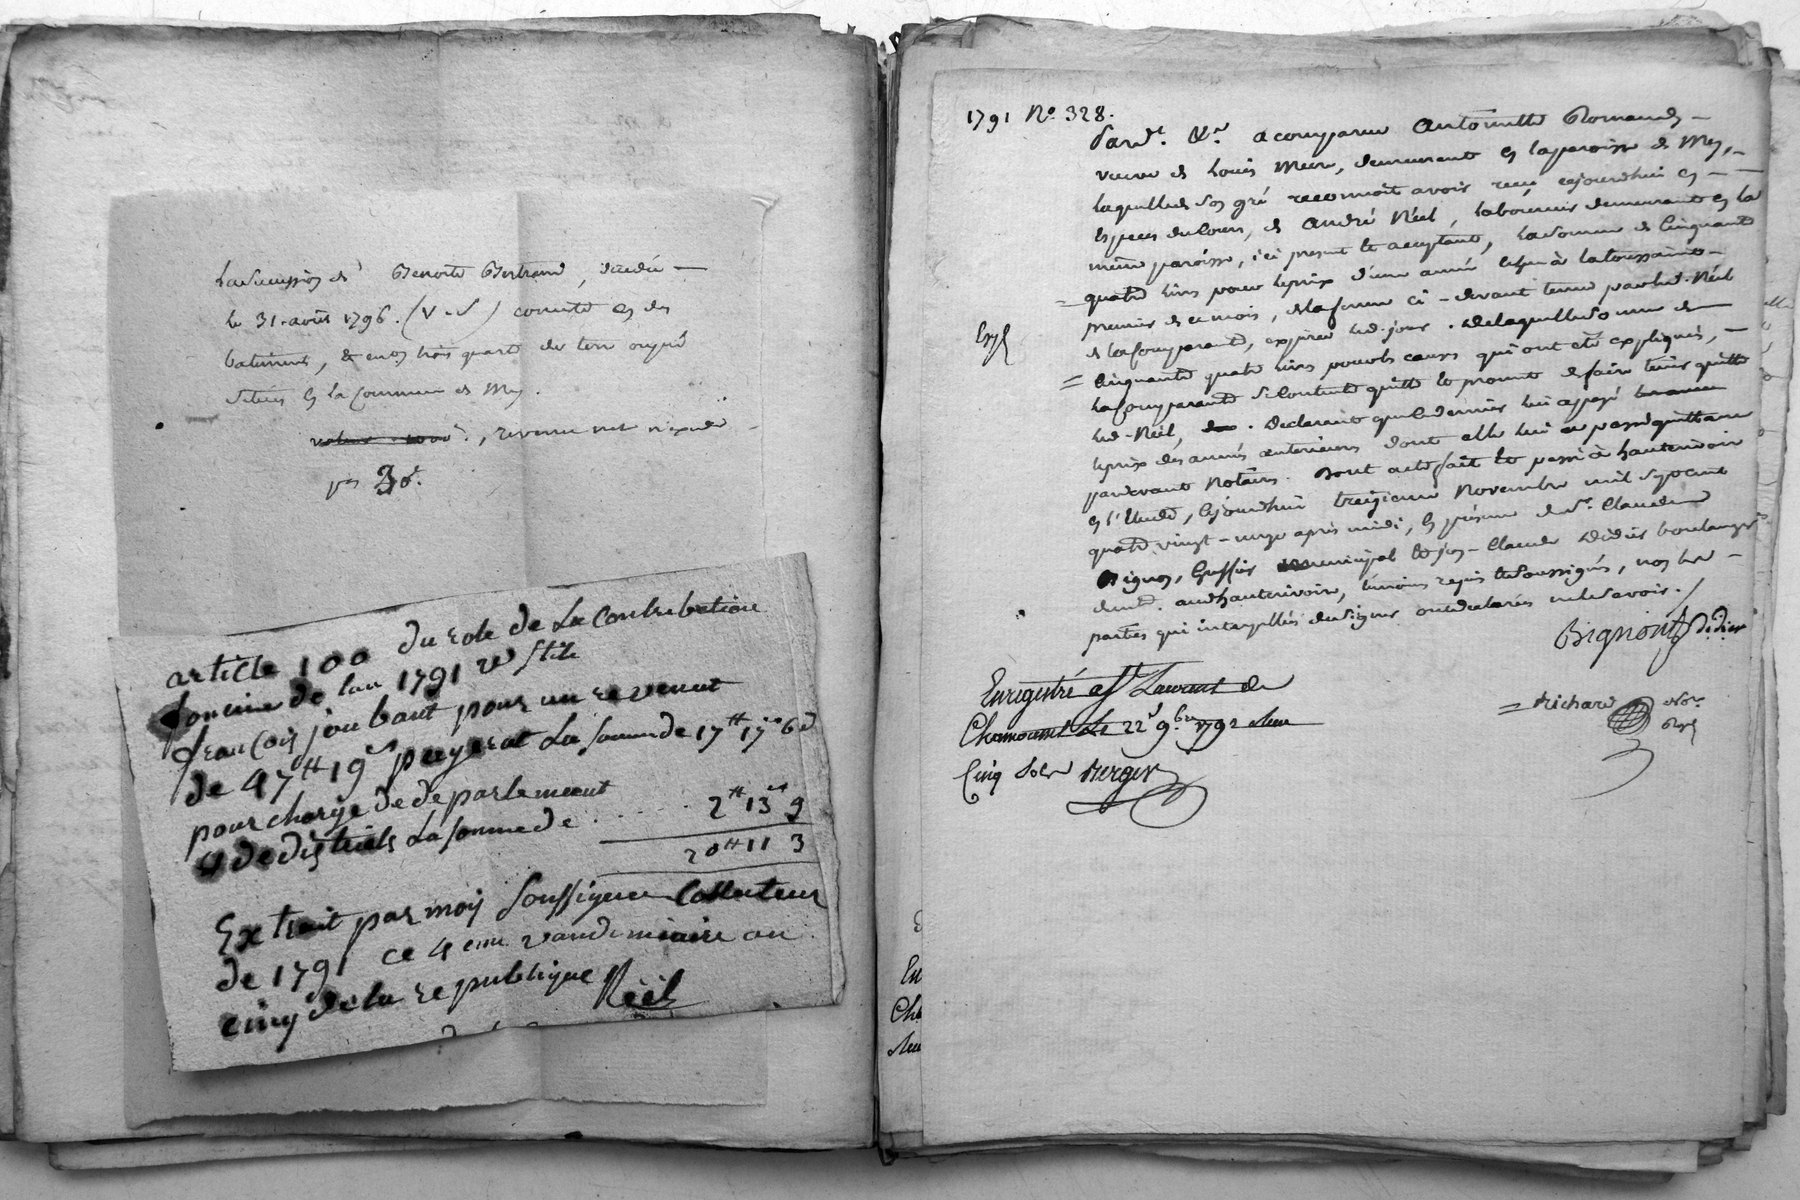 La Succession de Benoite Bertrand, décédée —
le 31 août 1796. (V. S) consiste en des
batimens, & environ trois quart de terre
situés en la Commune de Mey.
, revenu net
par
article 100 du role de la Contribution
fonciere de lan 1791 vx stile
francois joubant pour un revenut
de 47 ₶ 19 s payerat la somme de 17 ₶ 17 s 6 d
pour charge de departement
& de distriets la somme de . . . . 2 ₶ 13 s 9
20 ₶ 11 3
Extrait par moy soussigner Collecteur
de 1791 ce 4 eme vandemiaire an
cinq de la republique Néel
1791 No. 328.
Pard.t N.re a comparu Antoinette
veuve de Louis demeurant en la paroisse de Mey, —
laquelle de son gré reconnoit avoir reçu cejourdhui en —
especes du Cours, de André Néel, laboureur demeurant en la
même paroisse, ici present & acceptant, la somme de Cinquante
= quatre livres pour le prix d'une année echue à la toussaint —
premier de ce mois, de la ferme ci-devant tenue par led. Néel
Exp.
de la Comparante, expirée led. jour. De laquelle somme de
= Cinquante quatre livres pour les causes qui ont été expliquées, —
la Comparante se contente quitte & promet de faire tenir quitte
led. Néel, Declarant que ce dernier lui a payé
le prix des années anterieures dont elle lui a passé quittance
pardevant Notaires. Dont acte fait & passé à hauterivoire
en l'Etude, cejourdhui treizieme Novembre mil sept cent
quatre vingt-onze après midi, en présence de Sr. Claude
Bignon, officier municipal & Jean-Claude Didier boulanger
demt. aud hauterivoire, témoins requis & soussignés, non les —
parties qui interpellées de signer ont declarés ne le savoir. /
Bignon Didier
Enregistré a St Laurent de
Chamousset Le 22 9.bre 1791 Reçu
Cinq Sols Berger
= Richard No.re
Roy.l
En
Cha